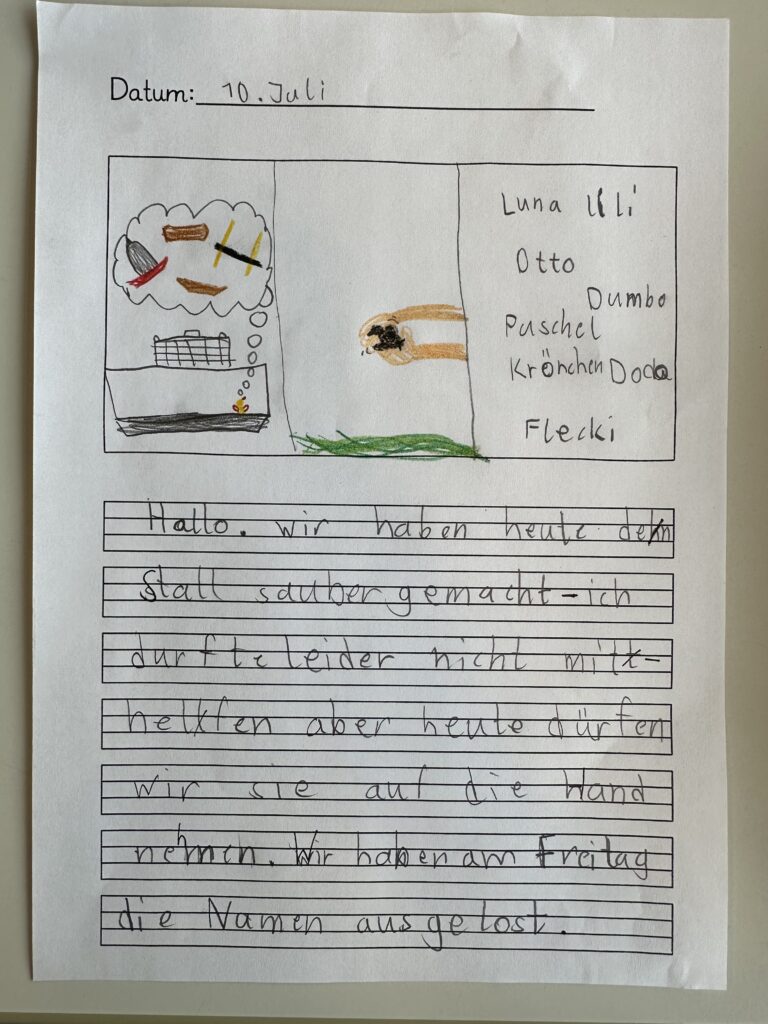 Datum: 10. Juli
Luna Lili
Otto
Dumbo
Puschel
Krönchen Doda
Flecki
Hallo. wir haben heute den
Stall sauber gemacht - ich
durfte leider nicht mit-
helfen aber heute dürfen
wir sie auf die Hand
nehmen. Wir haben am Freitag
die Namen ausgelost.